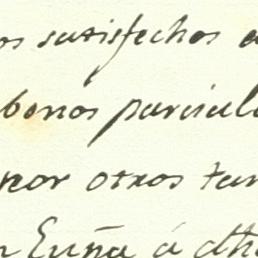 os satisfechos a
bonos particul
por otros tan
n Eurña á dth